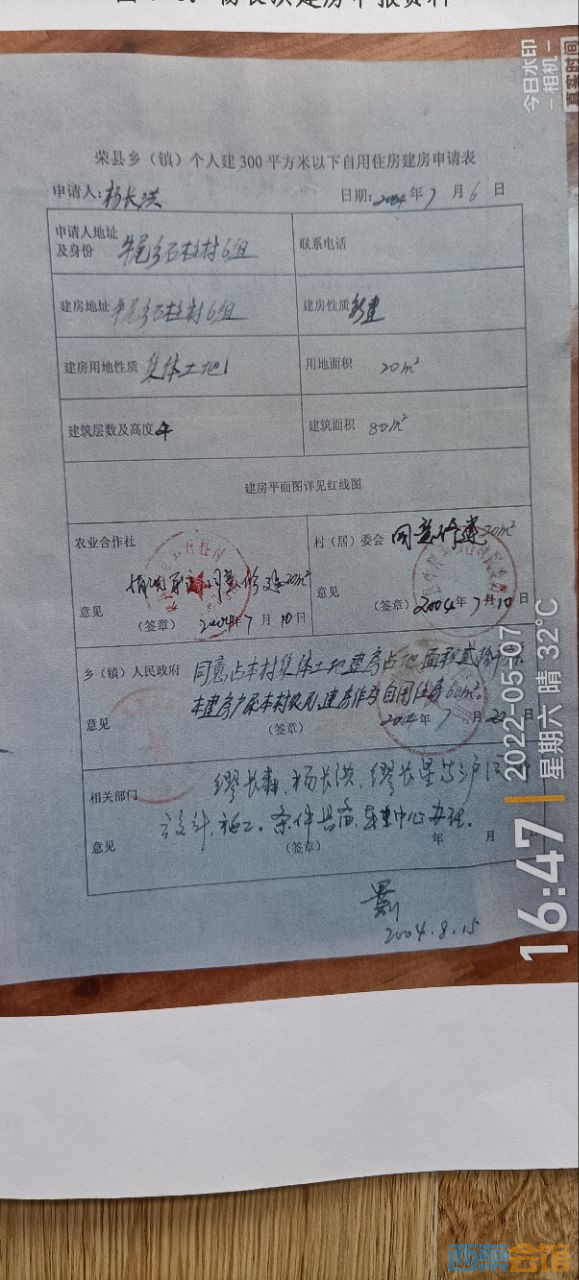 荣县乡（镇）个人建300平方米以下自用住房建房申请表
申请人：杨长洪 日期：2004年7月6日
申请人地址及身份 牛尾乡石柱村6组 联系电话
建房地址 牛尾乡石柱村6组 建房性质 新建
建房用地性质 集体土地 用地面积 20m²
建筑层数及高度 4 建筑面积 80m²
建房平面图详见红线图
农业合作社 村（居）委会 同意修建20m²
同意修建20m²
意见 意见
（签章） 2004年7月10日 （签章） 2004年7月10日
乡（镇）人民政府 同意占本村集体土地建房占地面积贰拾
本建房户系本村农民，建房作为自用住房60m²。
意见 （签章） 2004年7月22日
相关部门 缪长森、杨长洪、缪长星等三户
设计、施工。条件具备，办理。
意见 （签章） 年 月
2004.8.15
今日水印
-相机-
真实时间
16:47
2022-05-07
星期六 晴 32℃
西秦会馆